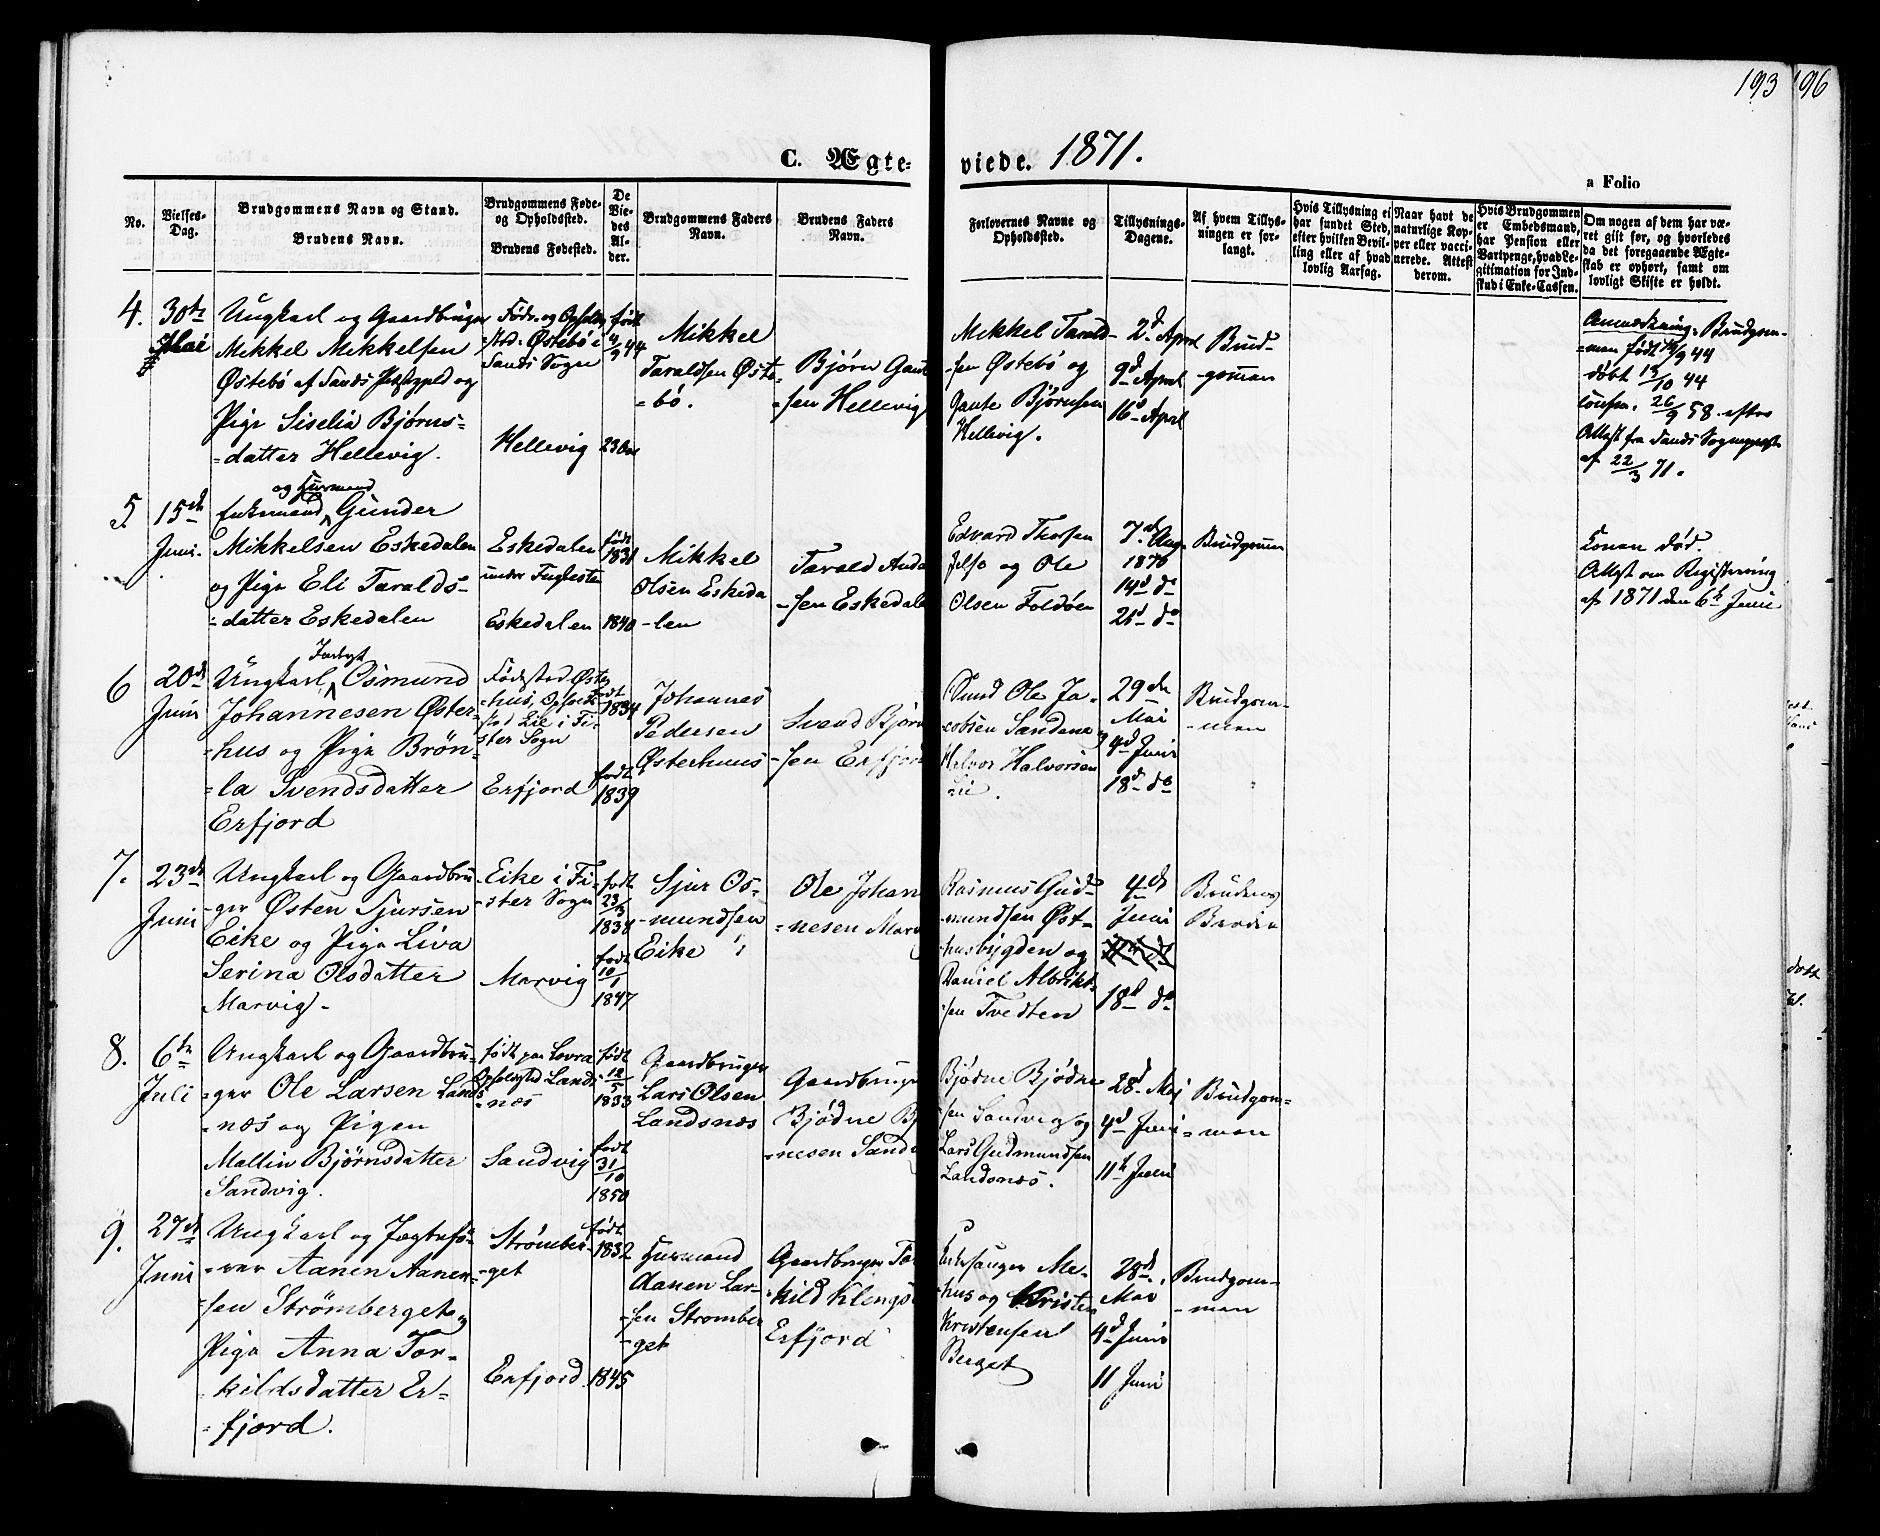 193 196
C. Ægte-
viede. 1871.
a Folio
No.
Vielses-
Dag.
Brudgommens Navn og Stand.
Brudens Navn.
Brudgommens Føde-
og Opholdssted.
Brudens Fødested.
De
Vie-
des
Al-
der.
Brudgommens Faders
Navn.
Brudens Faders
Navn.
Forlovernes Navne og
Opholdssted.
Tillysnings-
Dagene.
Af hvem Tillys-
ningen er for-
langt.
Hvis Tillysning ei
har fundet Sted,
efter hvilken Bevil-
ling eller af hvad
lovlig Aarsag.
Naar havt de
naturlige Kop-
per eller vacci-
nerede. Attest
derom.
Hvis Brudgommen
er Embedsmand,
har Pension eller
Vartpenge, hvad Le-
gitimation for Ind-
skud i Enke-Cassen.
Om nogen af dem har væ-
ret gift før, og hvorledes
da det foregaaende Ægte-
skab er ophørt, samt om
lovligt Skifte er holdt.
4.
30te
Mai
Ungkarl og Gaardbruger
Mikkel Mikkelsen
Østebö af Sands Præstegjeld og
Pige Siselia Björns-
-datter Hellevig.
Føde- og Opholds-
-sted. Østebö i
Sands Sogn
Hellevig
født
4/9 44
23 Aar
Mikkel
Taraldsen Øste-
-bö.
Bjørn Gaut
-sen Hellevig
Mikkel Tarald-
-sen Østebö og
Gaute Bjørnsen
Hellevig.
2d April
9d April
16d April
Brud-
gommen
Anmærkning. Brudgom-
-men født 4/9 44
döbt 13/10 44
confir. 26/9 58. efter
Attest fra Sands Sognepræst
af 22/3 71.
5
15de
Juni.
og Husmand
Enkemand Gunder
Mikkelsen Eskedalen
og Pige Eli Taralds-
-datter Eskedalen
Eskedalen
under Fuglestein
Eskedalen
født
1831
1840
Mikkel
Olsen Eskeda
-len
Tarald Anda
-sen Eskedale
Edvard Thorsen
Jelse og Ole
Olsen Foldöen
7de Aug.
1870
14d do
21d do
Brudgommen
Konen död.
Attest om Registrering
af 1871 den 6te Juni
6
20de
Juni
Ungkarl Osmund
Johannesen Øster-
-hus og Pige Brön-
-la Svendsdatter
Erfjord
Födested Øster
-hus, Opholds-
sted Lie i Fi-
ster Sogn
Erfjord
født
1834
født
1839
Johannes
Pedersen
Østerhuus
Svend Bjørn
-sen Erfjord
Ole Ja-
cobsen Sandene
Halvor Halvorsen
Lie.
29de
Mai
4d Juni
18d do
Brudgom-
-men
7.
23de
Juni
Ungkarl og Gaardbru-
-ger Østen Sjursen
Eike og Pige Liva
Serina Olsdatter
Marvig-
Eike i Fi-
-ster Sogn
Marvig
født
født
10/1
1847
Sjur Os-
-mundsen
Eike
Ole Johan
-nesen Marv
Rasmus Gud-
mundsen Øst-
-husbygden og
Daniel Albrikt-
-sen Tvedten
4de
Juni
18d do
Brudens
Broder
8.
6te
Juli
Ungkarl og Gaardbru-
-ger Ole Larsen Lands
-næs og Pigen
Mallin Bjørnsdatter
Sandvig.
født paa Lovra
Opholdssted Lands
-næs
Sandvig
født
12/5
1833
født
31/10
1850
Gaardbruger
Lars Olsen
Landsnæs
Gaardbruge
Bjødne Bj
-nesen Sandv
Bjødne Bjødne
-sen Sandvig og
Lars Gudmundsen
Landsnæs.
28d Maj
4d Juni
11te Juni
Brudgom-
-men
9.
27de
Juni
Ungkarl og Jægtefö-
-rer Aanen Aanen-
-sen Strømberget og
Pige Anna Tor-
-kildsdatter Er-
-fjord.
Strømber-
-get
Erfjord
født
1832
1845
Husmand
Aanen Lar-
-sen Strømber
-get
Gaardbruger Tor
-kild Klengs
Erfjord
Kirkesanger Me-
-hus og Kristen
Kristensen
Berget
28de
Mai
4d Juni
11 Juni
Brudgom-
-men